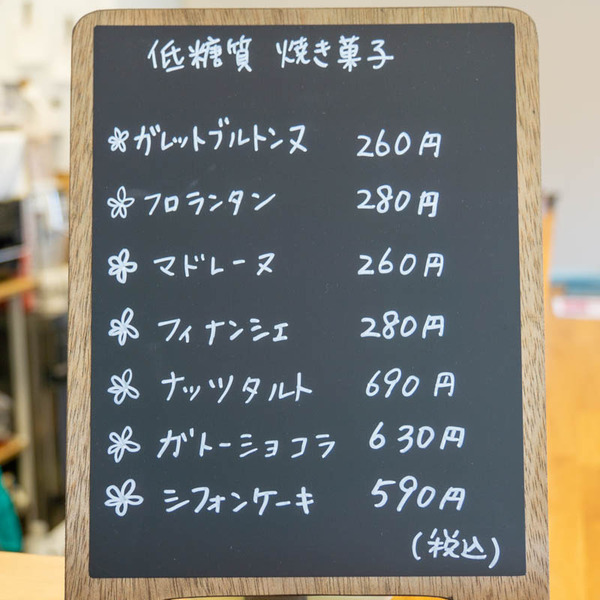 低糖質 焼き菓子
ガレットブルトンヌ 260円
フロランタン 280円
マドレーヌ 260円
フィナンシェ 280円
ナッツタルト 690円
ガトーショコラ 630円
シフォンケーキ 590円
(税込)